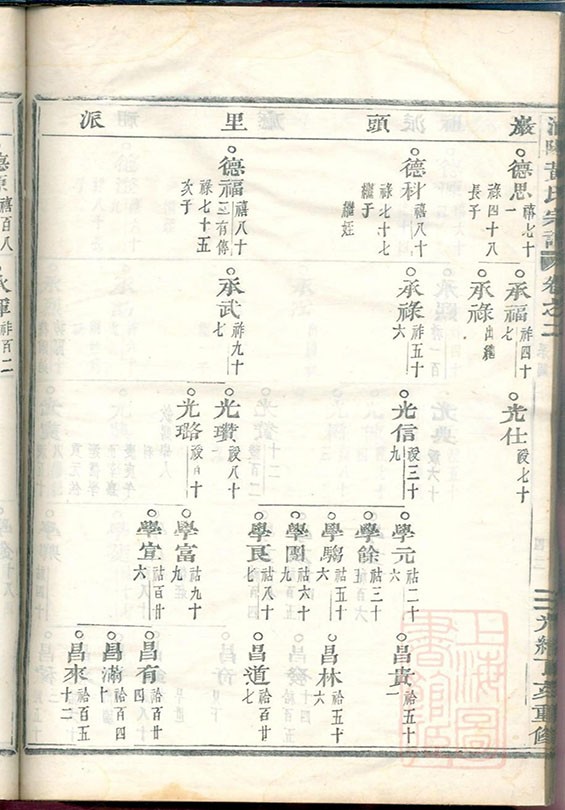 巖頭里派
德思 禧七十一 祿四十八 長子
德科 禧八十 祿七十七 繼子 繼姪
德福 禧八十三 有傳 祿七十五 次子
承福 祚四十七
承祿 出繼
承祿 祚五十六
承武 祚九十七
光仕 祋七十
光信 祋三十九
光瓚 祋八十
光璐
學元 祜二十六
學餘 祜三十五
學騶 祜五十六
學團 祜六十九
學良 祜八十七
學富 祜九十九
學宣 祜百廿六
昌貴 祫五十一
昌林 祫五十六
昌道 祫百廿七
昌有 祫百廿四
昌滿 祫百四
昌來 祫百五十二
黃氏宗譜 卷之二
光緒丁亥重修
上海圖書館藏